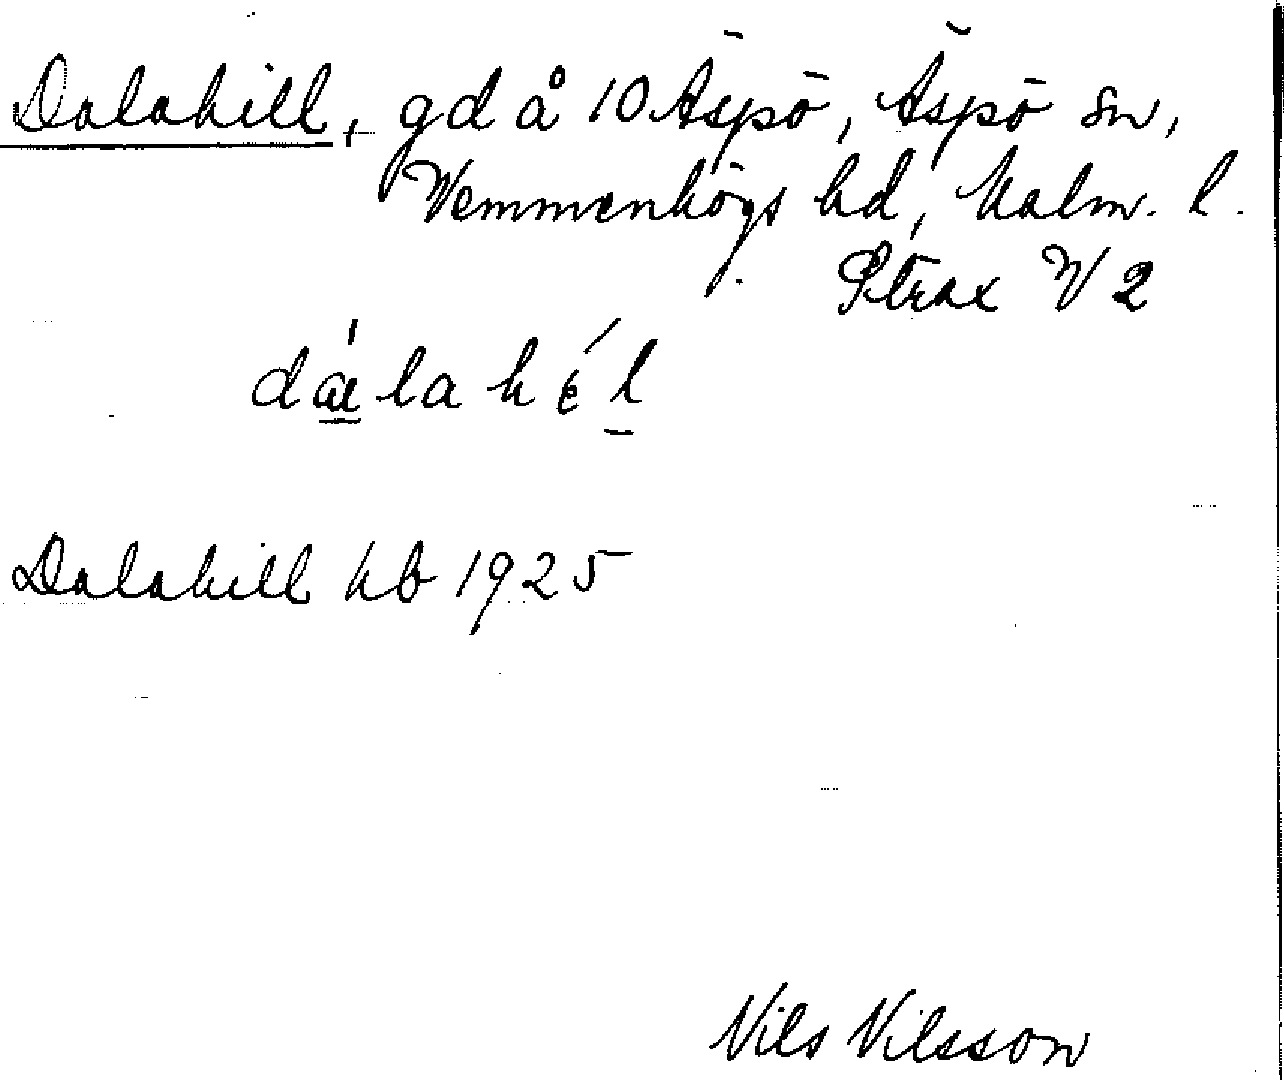 Dalahill, gd å 10 Äspö, Äspö sn,
Vemmenhögs hd, Malm. l.
Strax V 2
dálahɛ́l
Dalahill kb 1925
Nils Nilsson